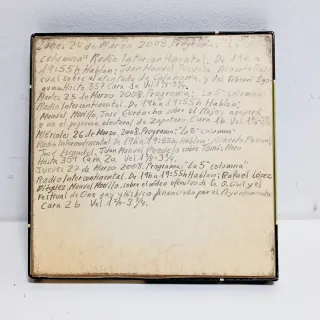 Lunes 24 de Marzo 2008. Programa... "La 5ª
columna" Radio Intercontinental. De 19h a
19:55h Hablan; Juan Manuel
sobre el atentado de Calahorra, y del
Hasta 357 Cara 1a Vel 1⅞-3¾.
Martes 25 de Marzo 2008. Programa; "La 5ª columna"
Radio Intercontinental. De 19h a 19:55h Hablan;
Mendel Morillo, José sobre si Rajoy apoyará
o no el programa electoral de Zapatero. Cara 1b Vel 1⅞-3¾.
Miércoles 26 de Marzo 2008. Programa: "La 5ª columna"
Radio Intercontinental. De 19h a 19:55h Hablan;
José Juan Manuel Pozuelo sobre Tomás
Hasta 357 Cara 2a Vel 1⅞-3¾.
Jueves 27 de Marzo 2008. Programa "La 5ª columna"
Radio Intercontinental. De 19h a 19:55h Hablan; Rafael López
Diéguez Mendel Morillo, sobre el video ofensivo de y el
Festival de Cine gay y lésbico financiado por el Ayuntamiento
Cara 2b Vel 1⅞-3¾.